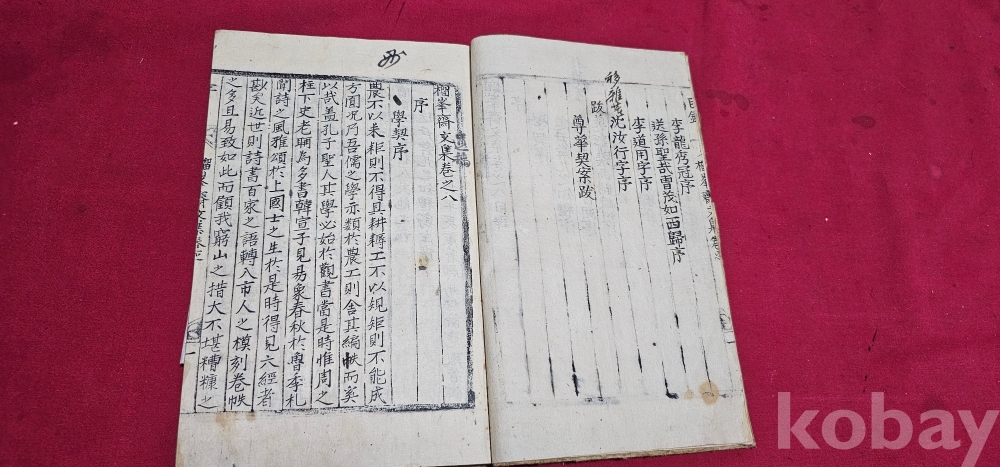 目錄
李龍彦冠序
送孫聖哉曺茂如西歸序
李道用字序
沈汝行字序
跋
尊華契案跋
榴峯齋文集卷之八
序
學契序
農不以耒耟則不得具耕耨工不以規矩則不能成
方圓况乃吾儒之學亦類於農工則舍其編帙而奚
以哉盖孔子聖人其學必始於觀書當是時惟周之
柱下史老聃為多書韓宣子見易象春秋於魯季札
聞詩之風雅頌於上國士之生於是時得見六經者
尠矣近世則詩書百家之語轉入市人之模刻卷帙
之多且易致如此而顧我窮山之措大不堪糟糠之
kobay